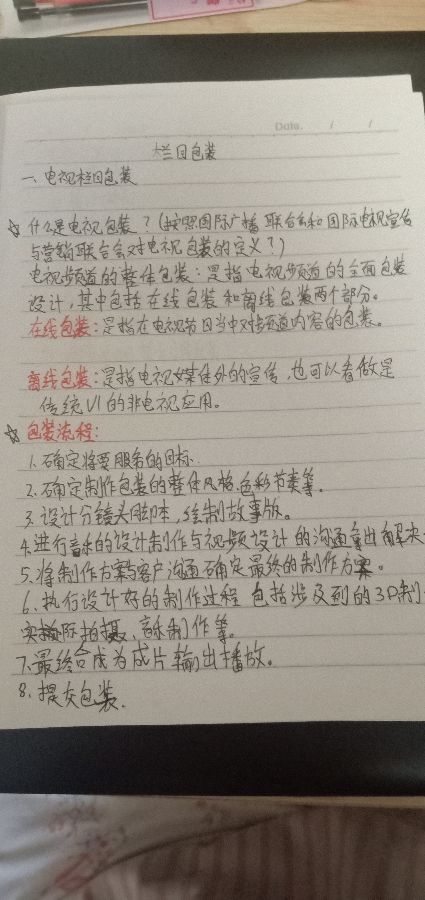 Date. / /
栏目包装
一、电视栏目包装
☆ 什么是电视包装?(按照国际广播联合会和国际电视宣传
与营销联合会对电视包装的定义?)
电视频道的整体包装:是指电视频道的全面包装
设计,其中包括在线包装和离线包装两个部分。
在线包装:是指在电视节目当中对频道内容的包装。
离线包装:是指电视媒体外的宣传,也可以看做是
传统VI的非电视应用。
☆ 包装流程:
1.确定将要服务的目标.
2.确定制作包装的整体风格.色彩节奏等。
3.设计分镜头脚本,绘制故事版。
4.进行音乐的设计制作与视频设计的沟通拿出解决
5.将制作方案与客户沟通确定最终的制作方案。
6.执行设计好的制作过程 包括涉及到的3D制
实际拍摄、音乐制作等。
7.最终合成为成片输出播放。
8.提交包装.